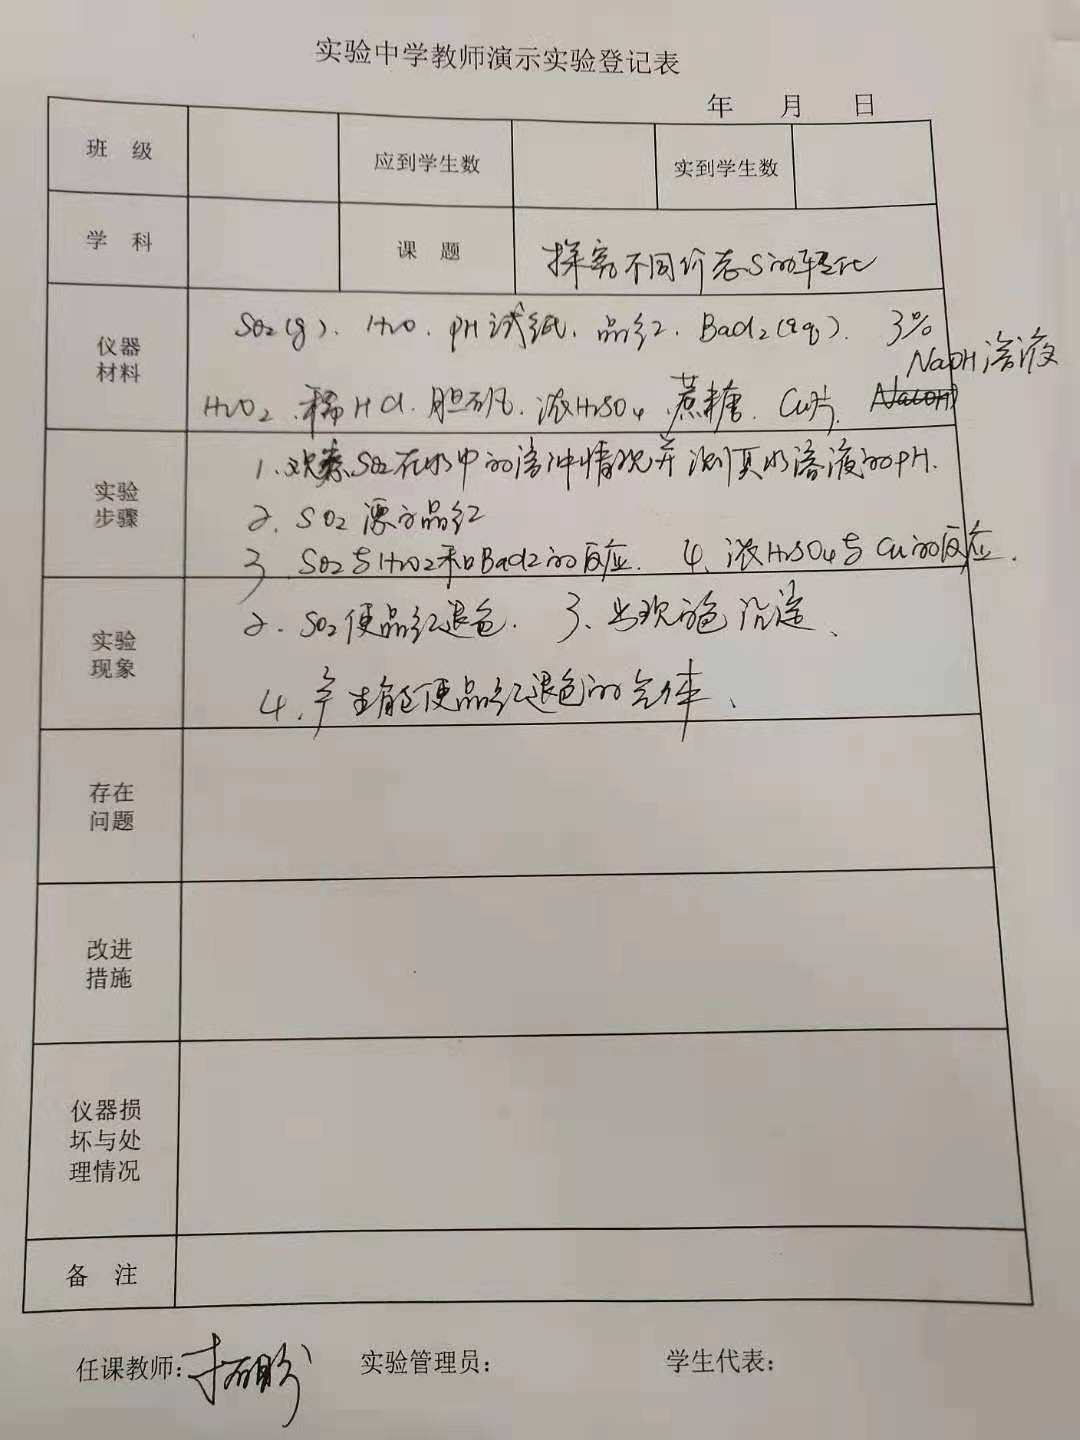 实验中学教师演示实验登记表
年 月 日
班 级 应到学生数 实到学生数
学 科 课 题 探究不同价态S的转化
仪器材料 SO2(g)、H2O、pH试纸、品红、BaCl2(aq)、3%
NaOH溶液
H2O2、稀HCl、胆矾、浓H2SO4、蔗糖、Cu片、
实验步骤 1.观察SO2在水中的溶解情况并测其水溶液的pH.
2. SO2漂白品红
3. SO2与H2O2和BaCl2的反应. 4.浓H2SO4与Cu的反应.
实验现象 2. SO2使品红退色. 3、出现白色沉淀、
4、产生能使品红退色的气体、
存在问题
改进措施
仪器损坏与处理情况
备 注
任课教师: 实验管理员: 学生代表: